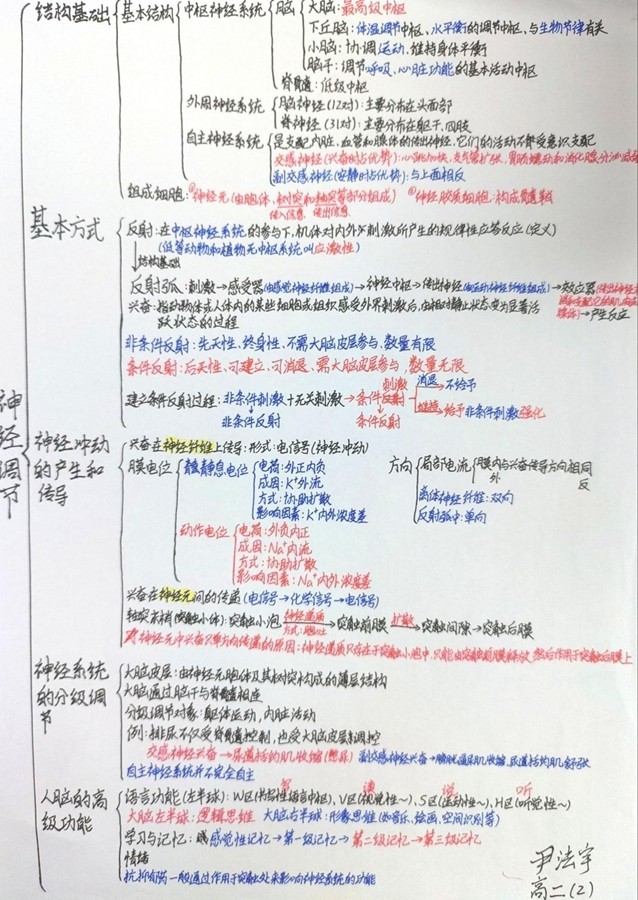 神经调节
结构基础
基本结构
中枢神经系统
脑
大脑:最高级中枢
下丘脑:体温调节中枢、水平衡的调节中枢、与生物节律有关
小脑:协调运动、维持身体平衡
脑干:调节呼吸、心脏功能的基本活动中枢
脊髓:低级中枢
外周神经系统
脑神经(12对):主要分布在头面部
脊神经(31对):主要分布在躯干、四肢
自主神经系统
是支配内脏、血管和腺体的传出神经,它们的活动不受意识支配
交感神经(兴奋时占优势):心跳加快、支气管扩张、胃肠蠕动和消化腺分泌减弱
副交感神经(安静时占优势):与上面相反
组成细胞:①神经元(由胞体、树突和轴突等部分组成) ②神经胶质细胞:构成髓鞘
传入信息 传出信息
基本方式
反射:在中枢神经系统的参与下,机体对内外刺激所产生的规律性应答反应(定义)
(低等动物和植物无中枢系统叫应激性)
结构基础
反射弧:刺激→感受器(由感觉神经纤维组成)→神经中枢→传出神经(由运动神经纤维组成)→效应器→产生反应
兴奋:指动物体或人体内的某些细胞或组织感受外界刺激后,由相对静止状态变为显著活
跃状态的过程
非条件反射:先天性、终身性、不需大脑皮层参与、数量有限
条件反射:后天性、可建立、可消退、需大脑皮层参与,数量无限
建立条件反射过程:非条件刺激+无关刺激→条件刺激
非条件反射
条件反射
消退→不给予
给予非条件刺激强化
神经冲动的产生和传导
兴奋在神经纤维上传导:形式:电信号(神经冲动)
膜电位
静息电位
电荷:外正内负
成因:K⁺外流
方式:协助扩散
影响因素:K⁺内外浓度差
动作电位
电荷:外负内正
成因:Na⁺内流
方式:协助扩散
影响因素:Na⁺内外浓度差
方向
局部电流
膜内与兴奋传导方向相同
外 反
离体神经纤维:双向
反射弧中:单向
兴奋在神经元间的传递(电信号→化学信号→电信号)
轴突末梢(突触小体):突触小泡 神经递质 方式:胞吐→突触前膜 扩散→突触间隙→突触后膜
神经元中兴奋只单方向传递的原因:神经递质只存在于突触小泡中,只能由突触前膜释放,然后作用于突触后膜上
神经系统的分级调节
大脑皮层:由神经元胞体及其树突构成的薄层结构
大脑通过脑干与脊髓相连
分级调节对象:躯体运动,内脏活动
例:排尿不仅受脊髓控制,也受大脑皮层调控
交感神经兴奋→尿道括约肌收缩 副交感神经兴奋→膀胱逼尿肌收缩、尿道括约肌舒张
自主神经系统并不完全自主
人脑的高级功能
写 读 说 听
语言功能(左半球):W区(书写性语言中枢)、V区(视觉性~)、S区(运动性~)、H区(听觉性~)
大脑左半球:逻辑思维 大脑右半球:形象思维(如音乐、绘画、空间识别等)
学习与记忆:感觉性记忆→第一级记忆→第二级记忆→第三级记忆
情绪
抗抑郁药一般通过作用于突触处来影响神经系统的功能
尹法宇
高二(2)